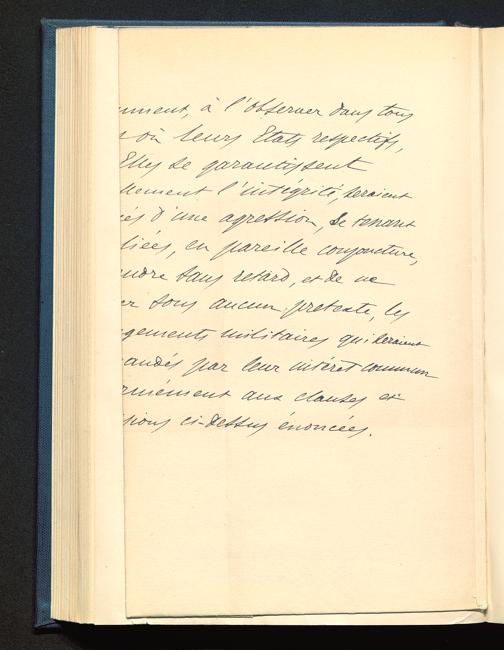 mment, à l'observer dans tous
où leurs Etats respectifs,
Elles se garantissent
llement l'intégrité, seraient
és d'une agression, Se tenant
liées, en pareille conjoncture,
ndre sans retard, et de ne
er sous aucun pretexte, les
gements militaires qui seraient
andés par leur intérêt commun
rmément aux clauses et
sions ci-dessus énoncées.